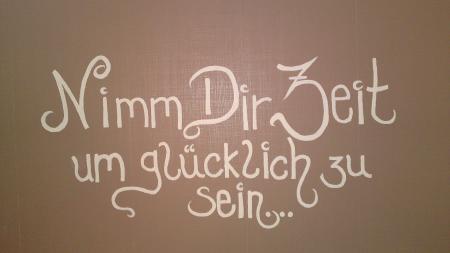 Nimm Dir Zeit
um glücklich zu
sein...